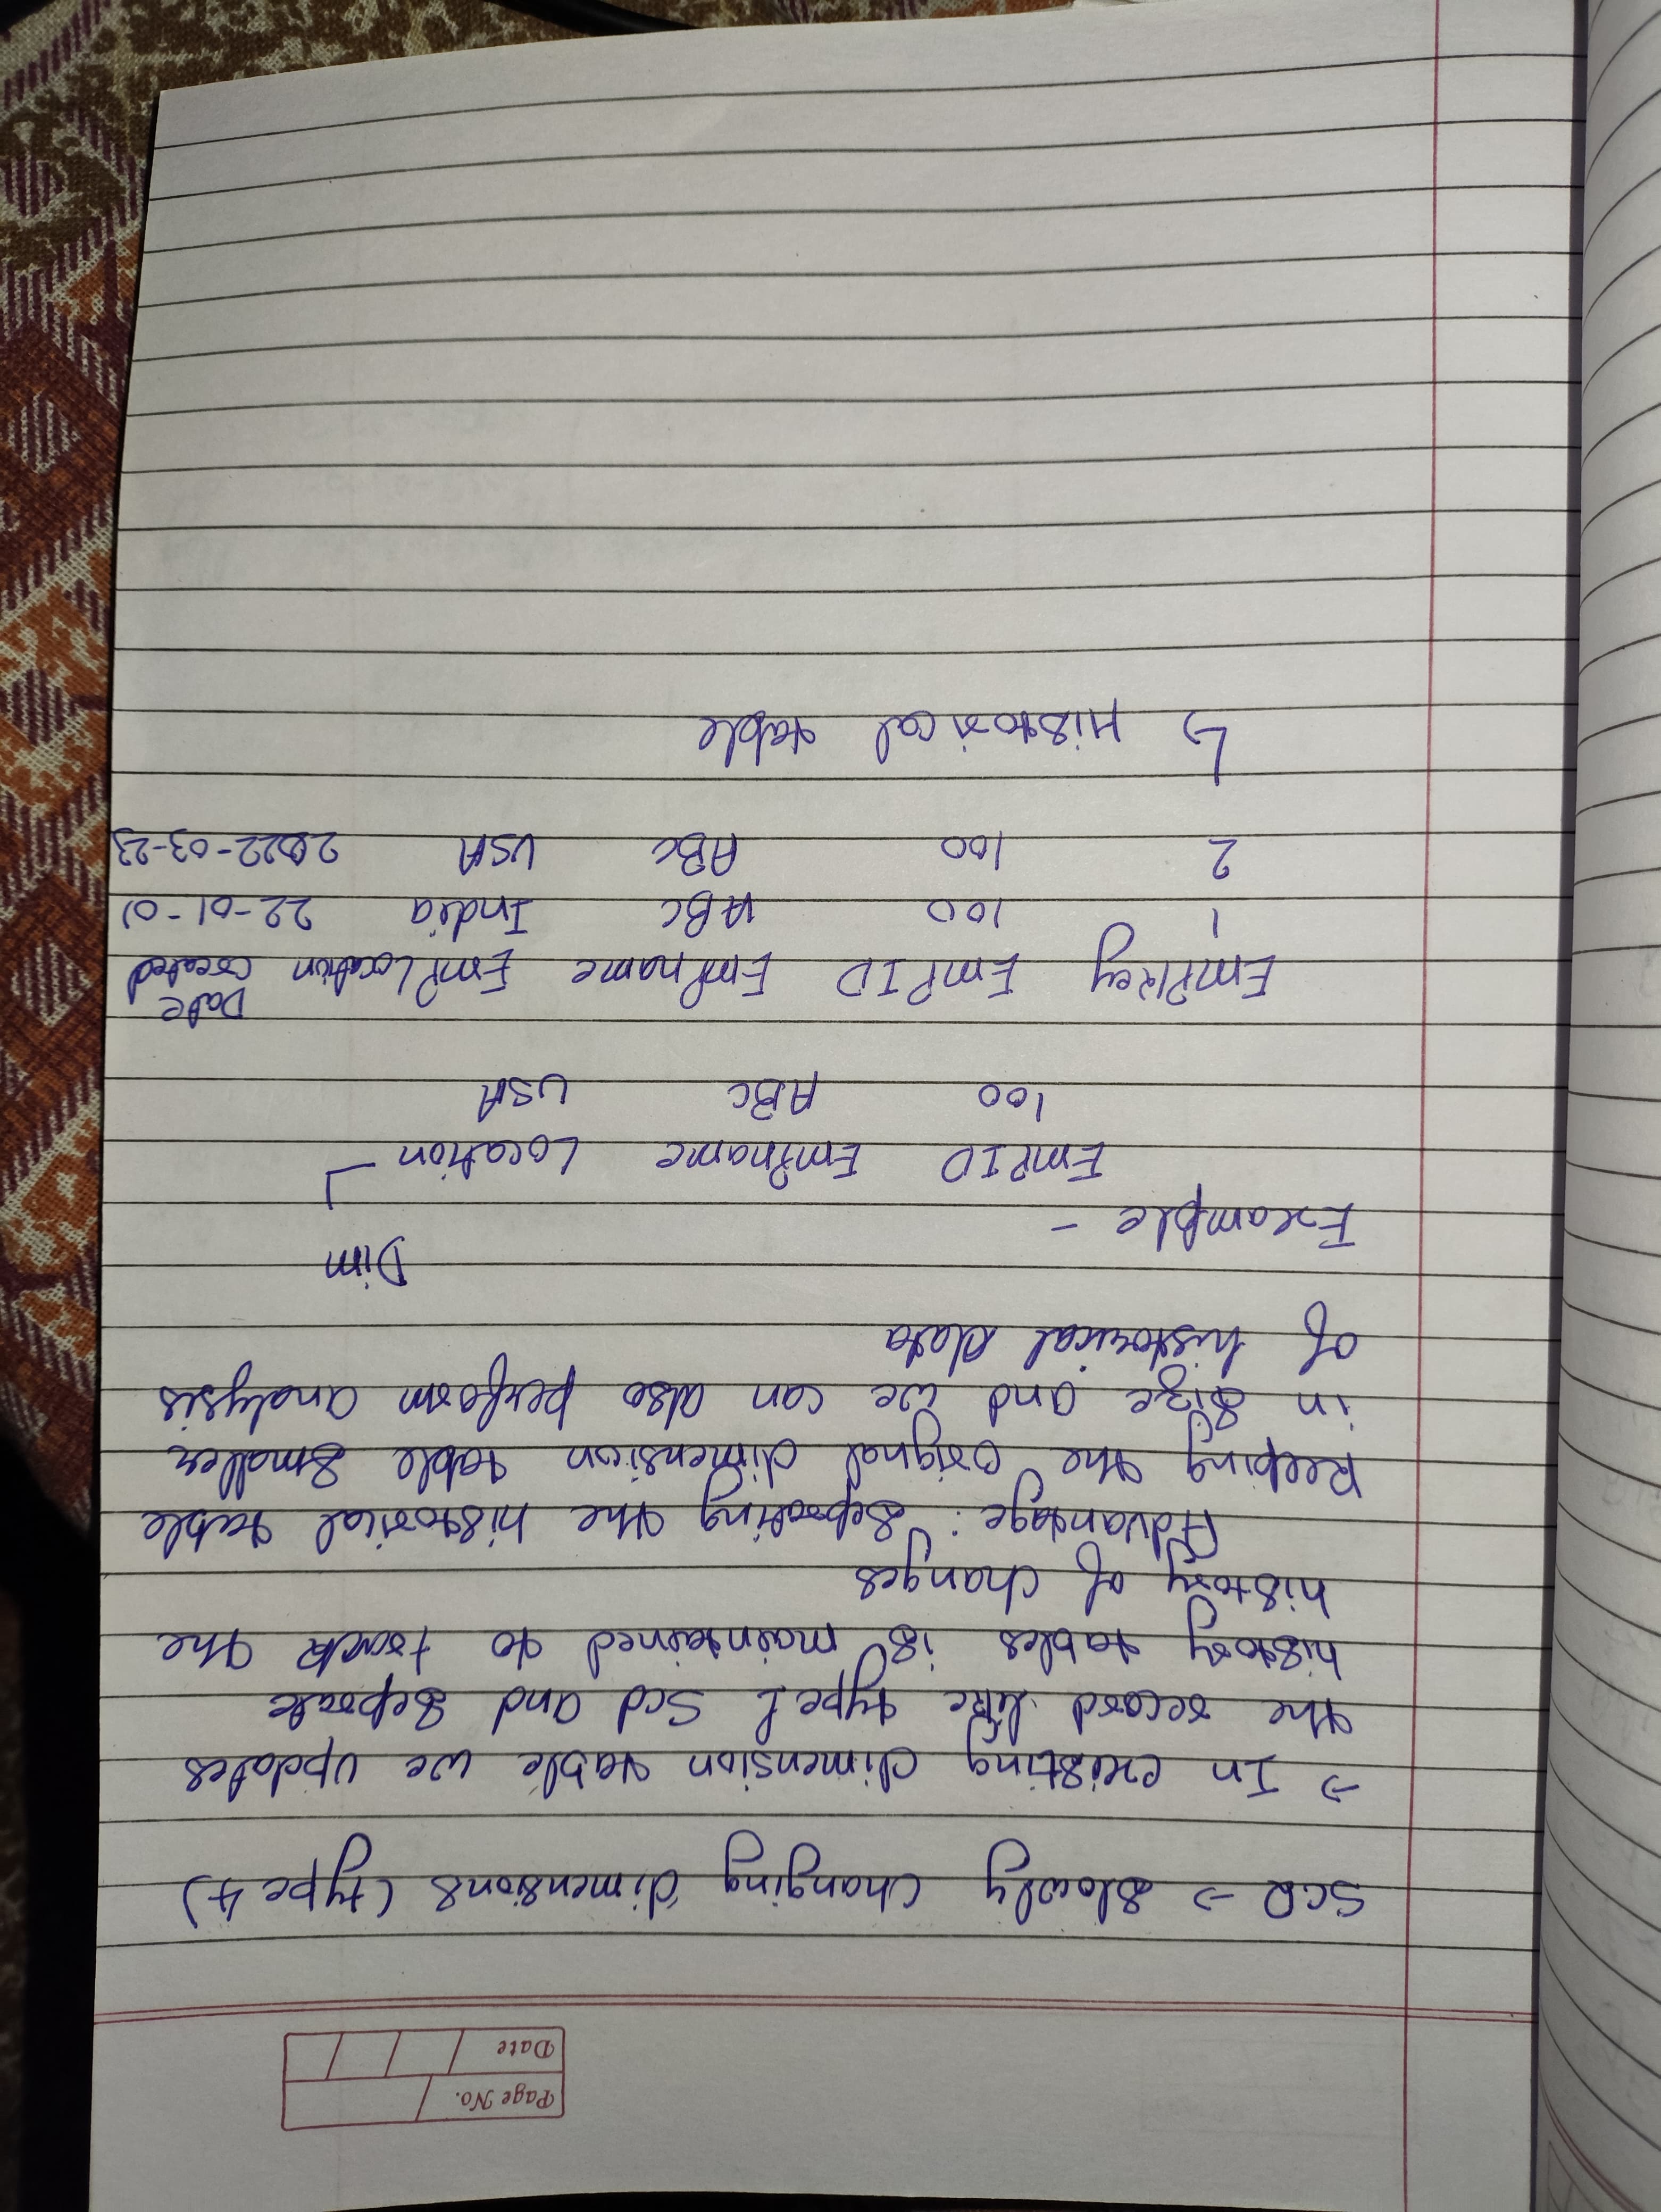 Page No.
Date
SCD → Slowly changing dimensions (type 4)
→ In existing dimension table we updates
the record like type 1 Scd and Seprate
history tables is maintained to track the
history of changes
Advantage: Seprating the historical table
Keeping the orignal dimension table smaller
in size and we can also perform analysis
of historical data
Dim
Example -
EmpID Empname Location
100 ABC USA
Date
EmpKey EmpID Empname EmpLocation Created
1 100 ABC India 22-01-01
2 100 ABC USA 2022-03-23
↳ Historical table